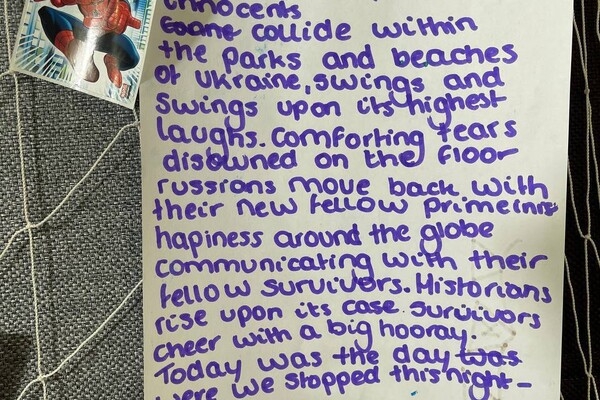 innocents
collide within
the parks and beaches
of Ukraine, swings and
swings upon its highest
laughs. Comforting tears
disowned on the floor
russians move back with
their new fellow primeinis
hapiness around the globe
communicating with their
fellow survivors. Historians
rise upon its case. Survivors
cheer with a big hooray.
Today was the day was
were we stopped this night-